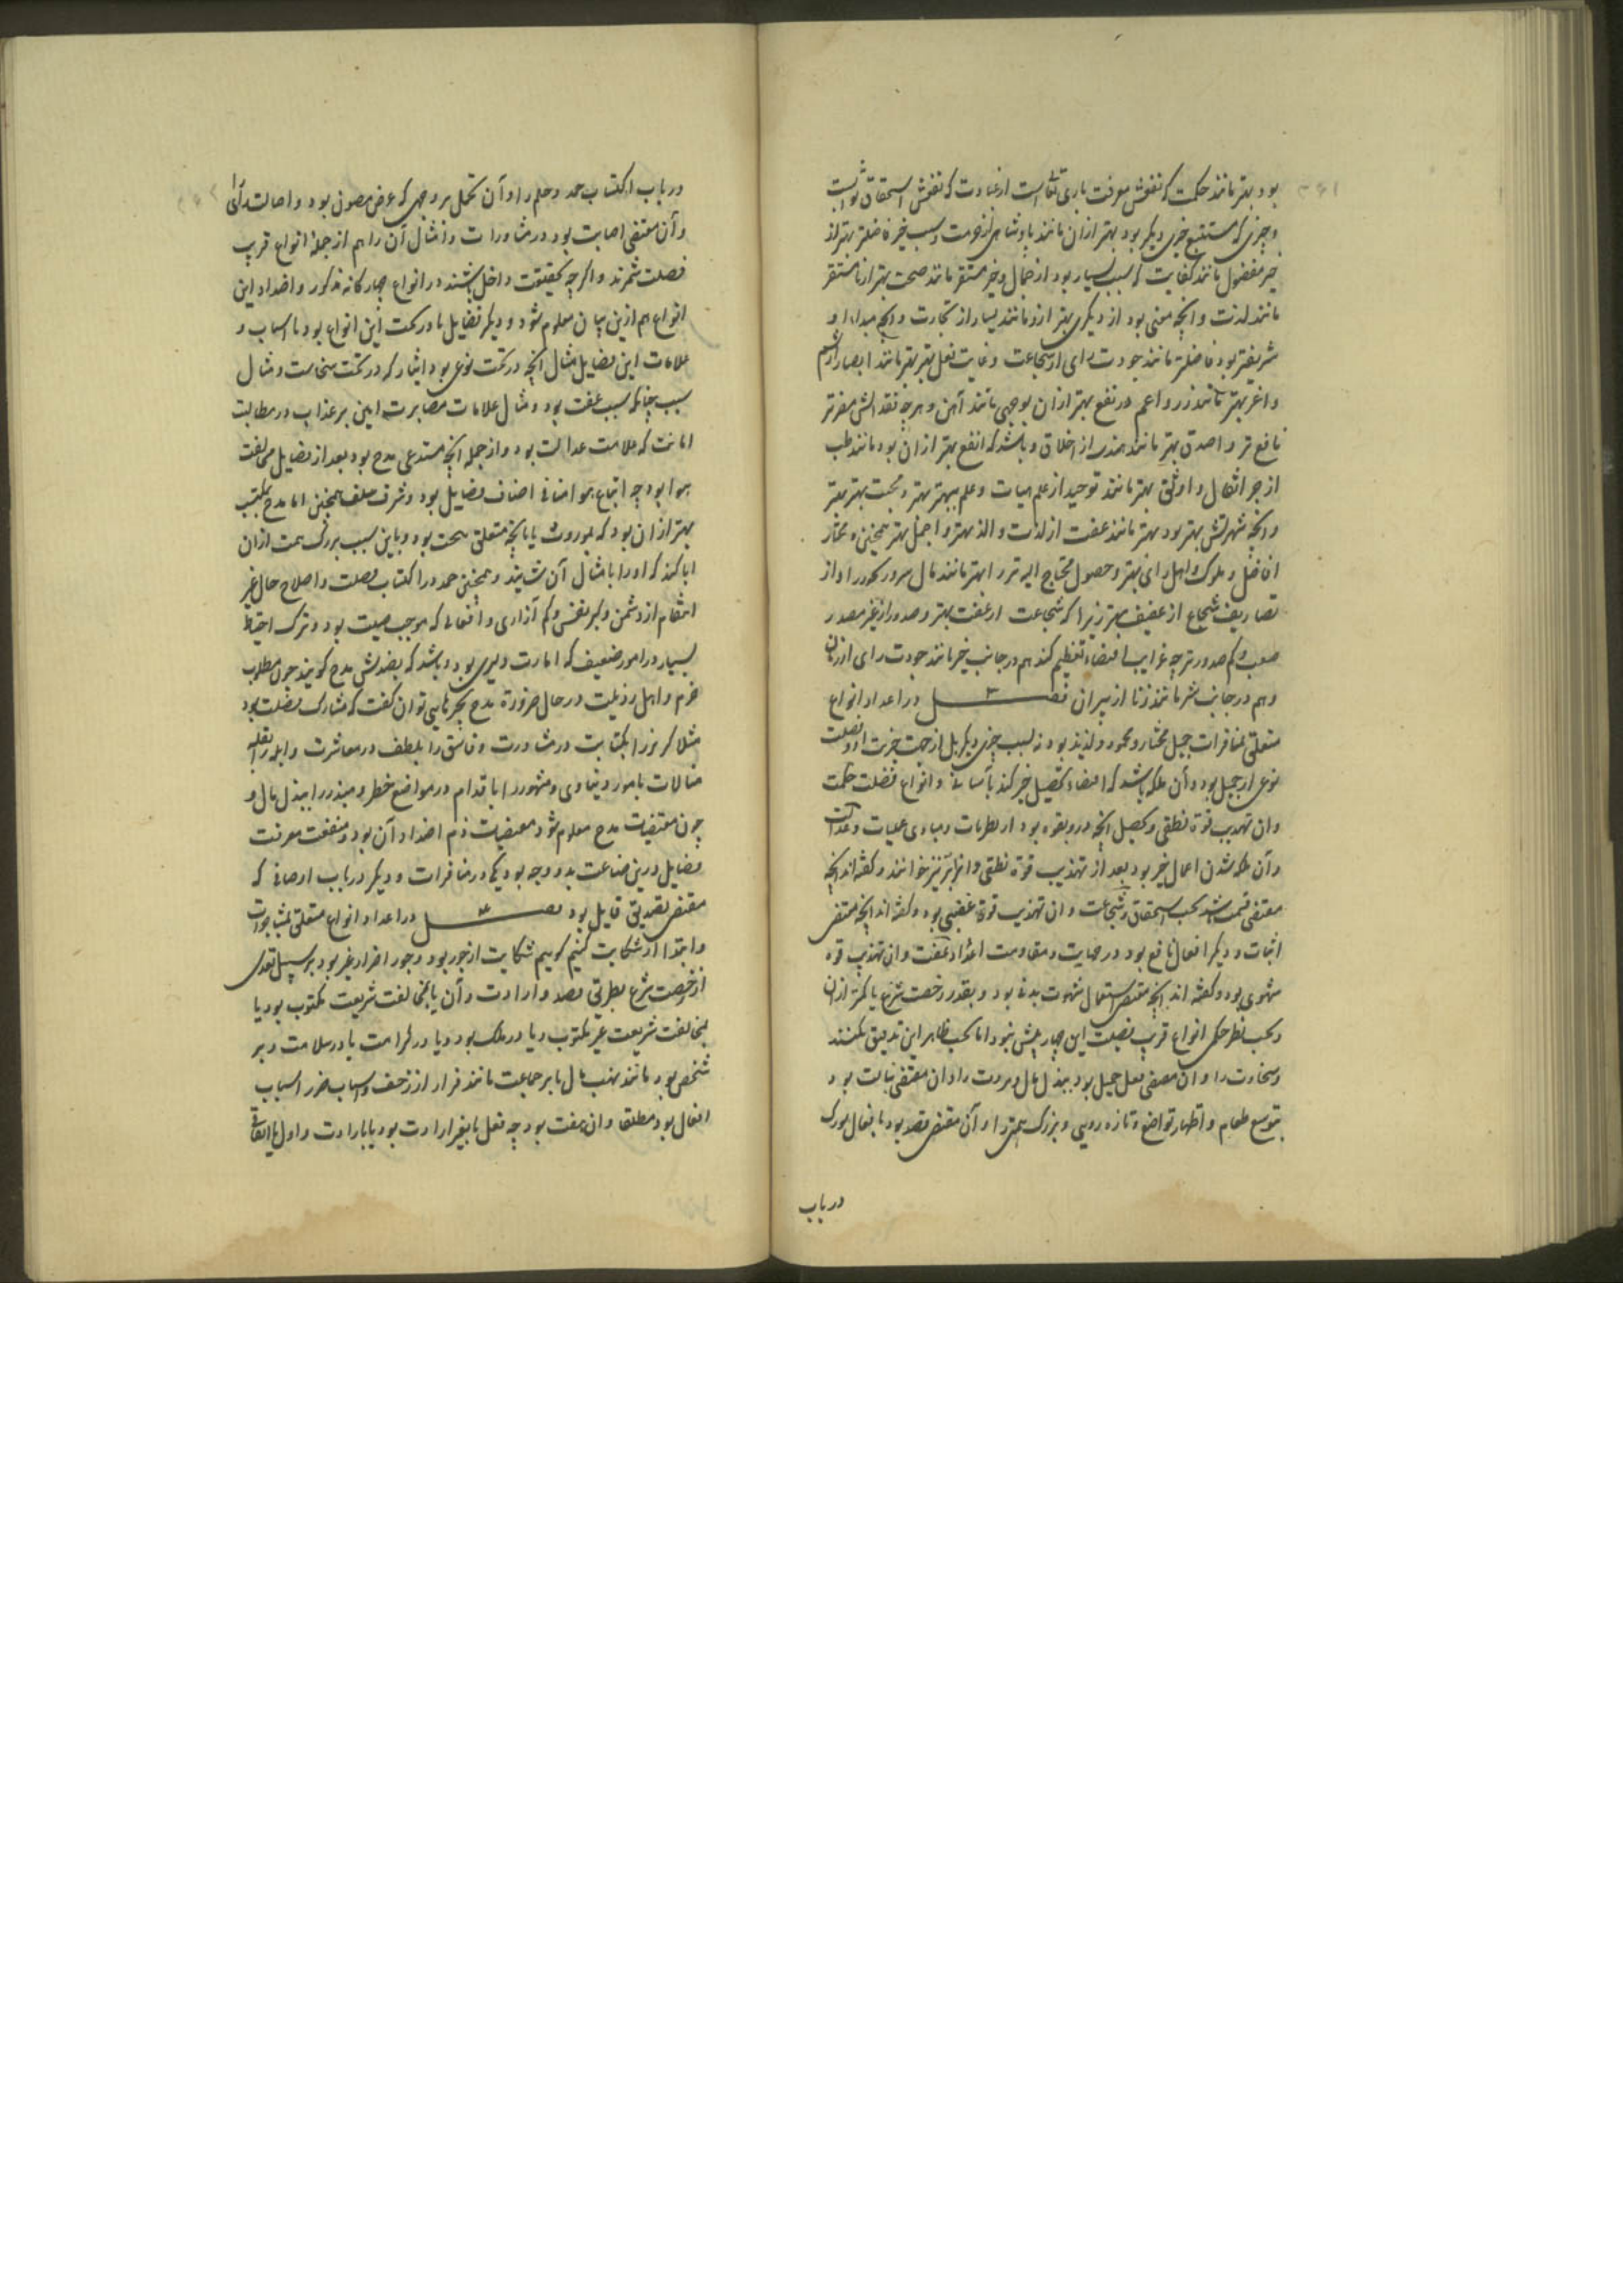 بود بهتر مانند حکمت که نفعش معرفت باری تعالی است از عبادت که نفعش استحقاق ثوابست
و چیزی که مستتبع خیری دیگر بود بهتر از آن مانند پادشاهی از حرمت و سبب خیر فاضلتر بهتر از
خیر مفضول مانند کفایت که سبب یسار بود از جمال و خیر مستقر مانند صحت بهتر از نامستقر
مانند لذت و آنچه مغنی بود از دیگری بهتر ازو مانند یسار از تجارت و آنچه مبداء او
شریفتر بود فاضلتر مانند جودت رای از شجاعت و غایت فعل بهتر بهتر مانند ابصار از شم
و اعز بهتر مانند زر و اعم در نفع بهتر از آن بوجهی مانند آهن و هرچه فقدانش مضرتر
نافع تر و اصدق بهتر مانند هندسه از اخلاق و باشد که انفع بهتر از آن بود مانند طب
از جر اثقال و اوثق بهتر مانند توحید از علم هیات و علم ببهتر بهتر و محبت بهتر بهتر
و آنچه شهرتش بهتر بود بهتر مانند عفت از لذت و الذ بهتر و اجمل بهتر همچنین و مختار
افاضل و ملوک و اهل رای بهتر و حصول محتاج الیه تر را بهتر مانند مال
تصاریف شجاع از عفیف بهتر زیرا که شجاعت از عفت بهتر و صدور از غیر مصدر
صعب و کم صدور ترجه غرایب اقتضاء تعظیم کند هم در جانب خیر مانند جودت رای از زنان
و هم در جانب شر مانند زنا از پیران فصل ۳ در اعداد انواع
متعلق بمنافرات جمیل مختار و محمود و لذیذ بود نه بسبب چیزی دیگر بل از جهت خیریت او و فضیلت
نوعی از جمیل بود و آن ملکه باشد که اقتضاء تحصیل خیر کند بآسانی و انواع فضیلت حکمت
و آن تهذیب قوة نطقی و تحصیل آنچه درو بقوه بود از نظریات و مبادی عملیات و عدالت
و آن ملکه شدن اعمال خیر بود بعد از تهذیب قوة نطقی و آنرا بر نیز خوانند و گفته اند آنچه
مقتضی قسمت باشد بحسب استحقاق و شجاعت و آن تهذیب قوة غضبی بود و گفته اند آنچه مقتضی
اثبات و دیگر افعال نافع بود در حمایت و مقاومت اعداد و عفت و آن تهذیب قوة
شهوی بود و گفته اند آنچه مقتضی استعمال شهوت بدنی بود و بقدر رخصت شرع یا کمتر از آن
و بحسب نظر حکمی انواع قریب فضیلت این چهار بیش نبود اما بحسب ظاهر این تدقیق نکنند
و سخاوت را و آن مقتضی فعل جمیل بود ببذل مال و مروت را و آن مقتضی نبالت بود
بتوسیع طعام و اظهار تواضع و تازه رویی و بزرگ همتی را و آن مقتضی قصد بود بافعال بزرگ
در باب
در باب اکتساب حمد و حلم را و آن تحمل بر وجهی که عرض مصون بود و اصالت رأی را
و آن مقتضی اصابت بود در مشاورات و امثال آن را هم از جملۀ انواع قریب
فضیلت شمرند و اگرچه بحقیقت داخل باشند در انواع چهارگانه مذکور و اضداد این
انواع هم ازین بیان معلوم شود و دیگر فضایل یا در تحت این انواع بود یا اسباب و
علامات این فضایل مثال آنچه در تحت نوعی بود ایثار که در تحت سخاست و مثال
سبب چنانکه سبب عفت بود و مثال علامات مصابرت امین بر عذاب در مطالبت
امانت که علامت عدالت بود و از جمله آنچه مستدعی مدح بود بعد از فضایل مخالفت
هوا بود چه اتباع هوا منافی اصناف فضایل بود و شرف سلف همچنین اما مدح بمکتسب
بهتر از آن بود که بموروث یا بآنچه متعلق ببخت بود و باین سبب بزرگ همت از آن
ابا کند که او را بامثال آن ستایند و همچنین حمد در اکتساب فضیلت و اصلاح حال غیر
انتقام از دشمن و کبر نفسی و کم آزاری و افعالی که موجب صیت بود و ترک احتیاط
بسیار در امور ضعیف که امارت دلیری بود و باشد که بضدش مدح گویند چون مطلوب
حزم و اهل رذیلت در حال ضرورة مدح بچیزهایی توان گفت که مشارک فضیلت بود
مثلا گربز را بکیاست در مشاورت و فاسق را بلطف در معاشرت و ابله را بقلت
مبالات بامور دنیاوی و متهور را باقدام در مواضع خطر و مبذر را ببذل مال و
چون مقتضیات مدح معلوم شود مقتضیات ذم اضداد آن بود و منفعت معرفت
فضایل درین صناعت بدو وجه بود یکی در منافرات و دیگر در باب اوصافی که
مقتضی تصدیق قایل بود فصل ۴ در اعداد انواع متعلق بمشاجرات
و ابتدا از شکایت کنیم گوییم شکایت از جور بود و جور اضرار غیر بود بر سبیل تعدی
از رخصت شرع بطریق قصد و ارادت و آن یا بمخالفت شریعت مکتوب بود یا
بمخالفت شریعت غیر مکتوب و یا در ملک بود و یا در کرامت یا در سلامت و بر
شخص بود مانند نهب مال یا بر جماعت مانند فرار از زحف و اسباب ضرر اسباب
افعال بود مطلقا و آن هفت بود چه فعل یا بغیر ارادت بود یا بارادت و اول یا اتفاقی